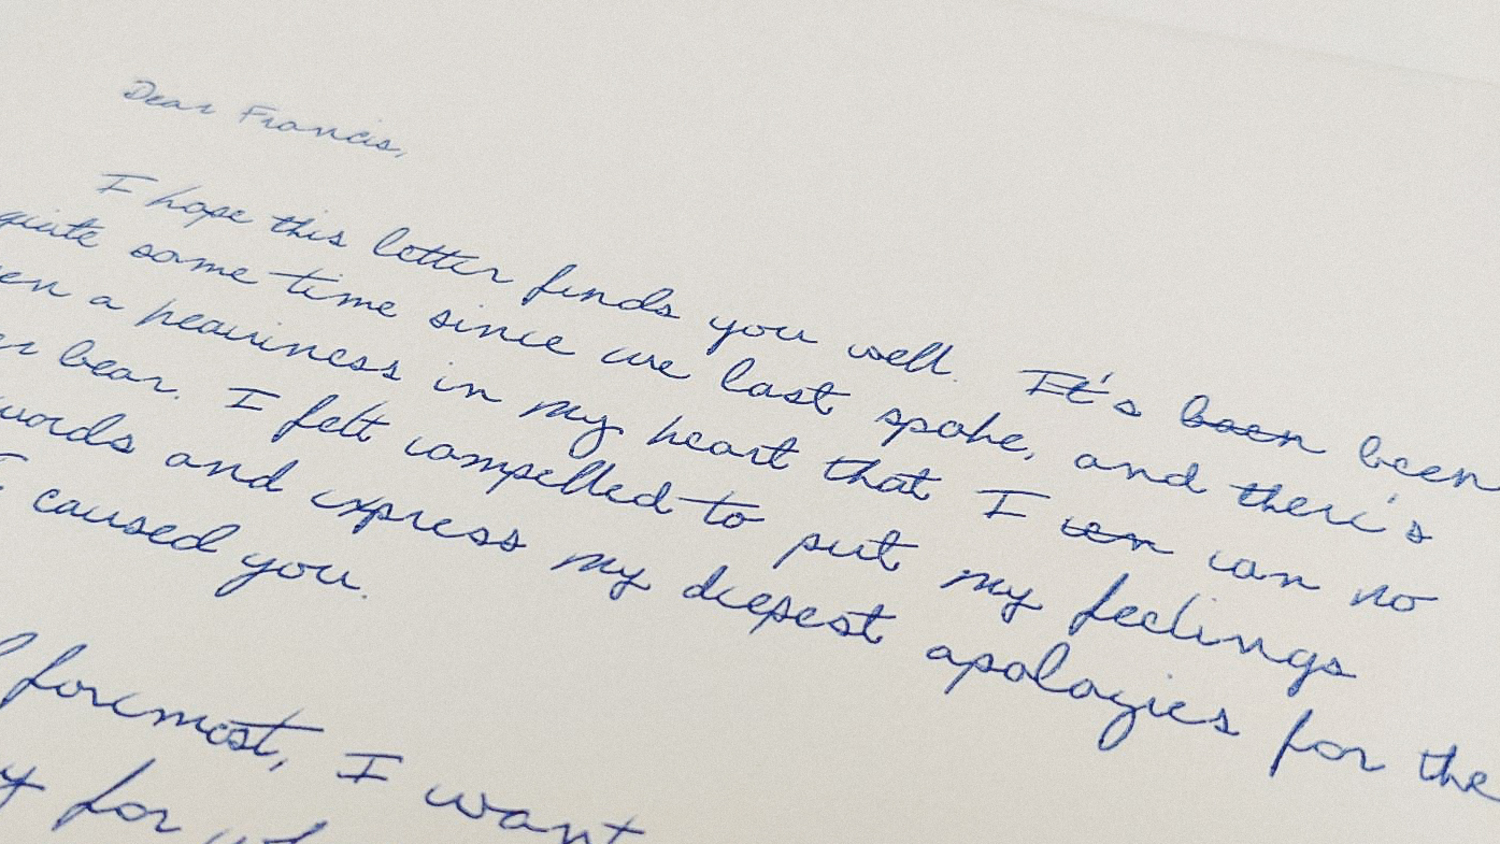 Dear Francis,
I hope this letter finds you well. It's been been
quite some time since we last spoke, and there's
en a heaviness in my heart that I can can no
er bear. I felt compelled to put my feelings
words and express my deepest apologies for the
I caused you.
foremost, I want
for